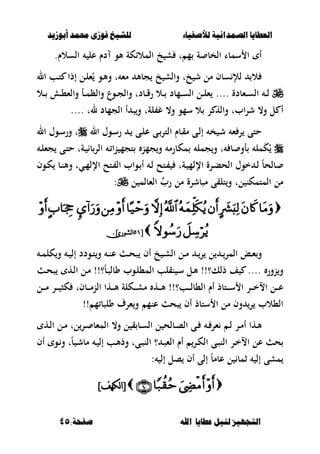 العطايا الصمدانية للأصفياء للشيخ فوزى محمد أبوزيد
أى الأسماء الخاصة بهم، فشيخ الملائكة هو آدم عليه السلام.
فلابد للإنسان من شيخ، والشيخ يجاهد معه، وهو يُعلن إذا كتب الله
له السعادة .... يعلن السهاد بلا رقاد، والجوع والظمأ والعطش بلا
أكل ولا شراب، والذكر بلا سهو ولا غفلة، ويبدأ الجهاد لله، ....
حتى يرفعه شيخه إلى مقام التربى على يد رسول الله ﷺ، ورسول الله
ﷺ يُكمله بأوصافه، ويجمله بمكارمه ويجهزه بتجهيزاته الربانية، حتى يجعله
صالحاً لدخول الحضرة الإلهية، فيفتح له أبواب الفتح الإلهي، وهنا يكون
من المتمكنين، ويتلقى مباشرة من ربِّ العالمين:
﴿وَمَا كَانَ لِبَشَرٍ أَن يُكَلِّمَهُ ٱللَّهُ إِلَّا وَحْيًا أَوْ مِن وَرَآيِٕ حِجَابٍ أَوْ
يُرْسِلَ رَسُولًا﴾ [٥١الشورى].
وبعض المريدين يريد من الشيخ أن يبحث عنه ويتودد إليه ويكلمه
ويزوره .... كيف ذلك؟!! هل سينقلب المطلوب طالباً؟!! من الذى يبحث
عن الآخر الأستاذ أم الطالب؟!! هذه مشكلة هذا الزمان، فكثير من
الطلاب يريدون من الأستاذ أن يبحث عنهم ويعرف طلباتهم!!
هذا أمر لم نعرفه فى الصالحين السابقين ولا المعاصرين، من الذى
بحث عن الآخر النبى الكريم أم العبد؟ النبى، وذهب إليه ماشياً، ونوى أن
يمشى إليه ثمانين عاماً إلى أن يصل إليه:
﴿أَوْ أَمْضِىَ حُقُبًا ۝٦٠﴾ [الكهف]
التجهيز لنيل عطايا الله صفحة:٤٥